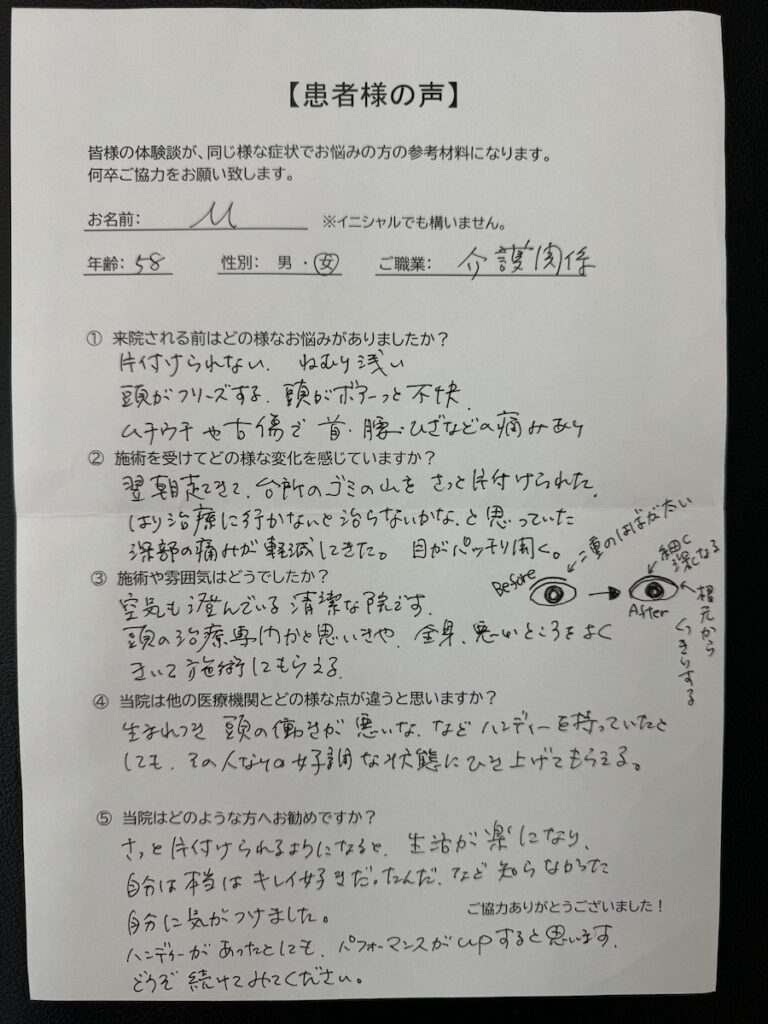 【患者様の声】
皆様の体験談が、同じ様な症状でお悩みの方の参考材料になります。
何卒ご協力をお願い致します。
お名前: M ※イニシャルでも構いません。
年齢: 58 性別: 男 ・ 女 ご職業: 介護関係
① 来院される前はどの様なお悩みがありましたか？
片付けられない、ねむり浅い
頭がフリーズする、頭がボアーっと不快
ムチウチや古傷で首・腰・ひざなどの痛みあり
② 施術を受けてどの様な変化を感じていますか？
翌朝起てきて、台所のゴミの山をさっと片付けられた。
はり治療に行かないと治らないかな、と思っていた
深部の痛みが軽減してきた。目がパッチリ開く。
Before
二重のはばが太い
After
細く
深くなる
根元から
くっきりする
③ 施術や雰囲気はどうでしたか？
空気も澄んでいる清潔な院です。
頭の治療専門かと思いきや、全身、悪いところをよく
きいて施術してもらえる。
④ 当院は他の医療機関とどの様な点が違うと思いますか？
生まれつき頭の働きが悪いな、などハンディーを持っていたと
しても、その人なりの好調な状態にひき上げてもらえる。
⑤ 当院はどのような方へお勧めですか？
さっと片付けられるようになると、生活が楽になり、
自分は本当はキレイ好きだったんだ、など知らなかった
自分に気がつけました。
ご協力ありがとうございました！
ハンディーがあったとしても、パフォーマンスがupすると思います。
どうぞ続けてみてください。